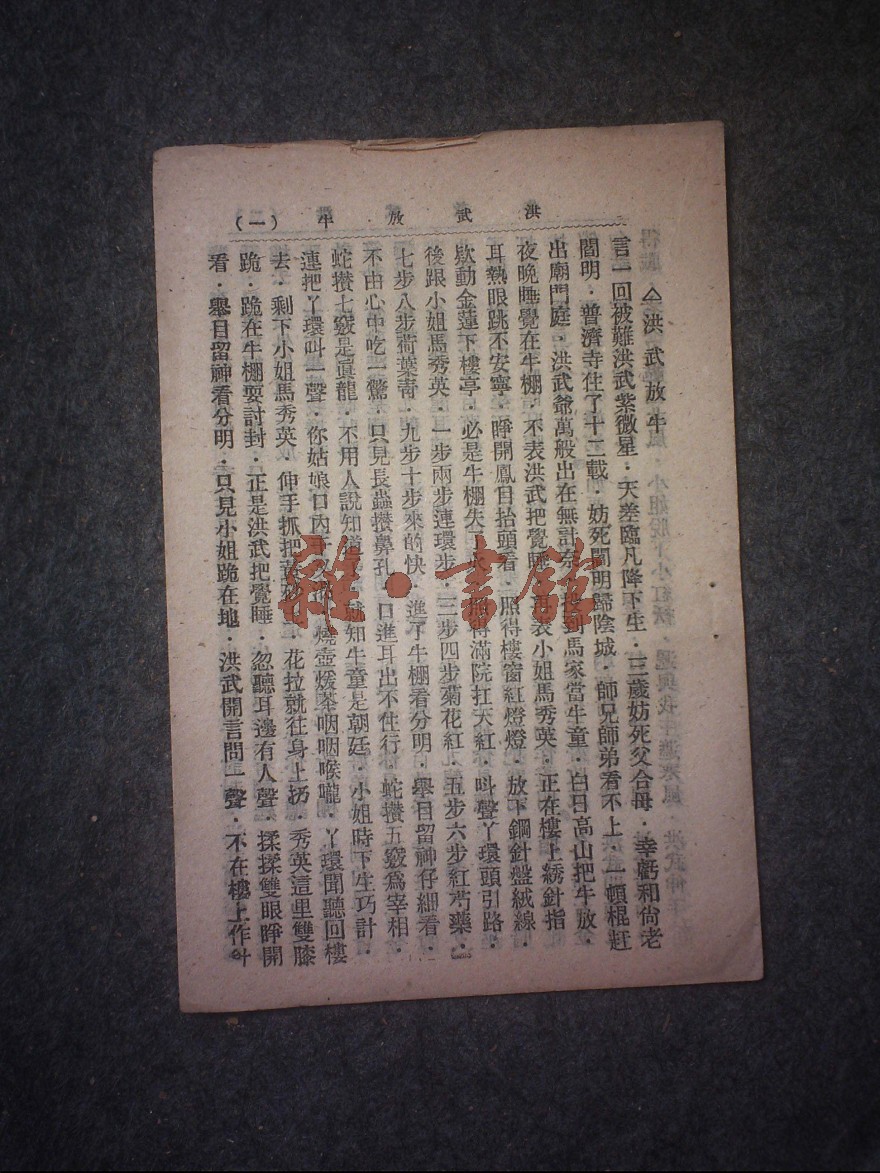 洪武放牛（一）
洪武放牛
言一回被難洪武紫微星·天差臨凡降下生·三歲妨死父合母·幸虧和尙老
閻明·普濟寺住了十二載·妨死閻明歸陰城·師兄師弟看不上·一頓棍赶
出廟門庭·洪武爺萬般出在無計奈·到馬家當牛童·白日高山把牛放·
夜晚睡覺在牛棚·不表洪武把覺睡·表小姐馬秀英·正在樓上綉針指
耳熱眼跳不安寧·睜開鳳目抬頭看·照得樓窗紅燈燈·放下鋼針盤絨線·
欵動金蓮下樓亭·必是牛棚失·得滿院扛天紅·呌聲丫環頭引路·
後跟小姐馬秀英·一步兩步連環步·三步四步菊花紅·五步六步紅芍藥·
七步八步荷葉靑·九步十步來的快·進了牛棚看分明·舉目留神仔細看·
不由心中吃一驚·只見長蟲攢鼻孔·口進耳出不住行·蛇攢五竅爲宰相·
蛇攢七竅是眞龍·不用人說知道·知牛童是朝廷·小姐時下生巧計·
連把丫環叫一聲·你姑娘口內·燒壺煖茶咽咽喉嚨·丫環聞聽回樓
去·剩下小姐馬秀英·伸手抓把·花拉就往身上扔·秀英這里雙膝
跪·跪在牛棚要討封·正是洪武把覺睡·忽聽耳邊有人聲·揉揉雙眼睜開
看·舉目留神看分明·只見小姐跪在地·洪武開言問一聲·不在樓上作
雜·書館